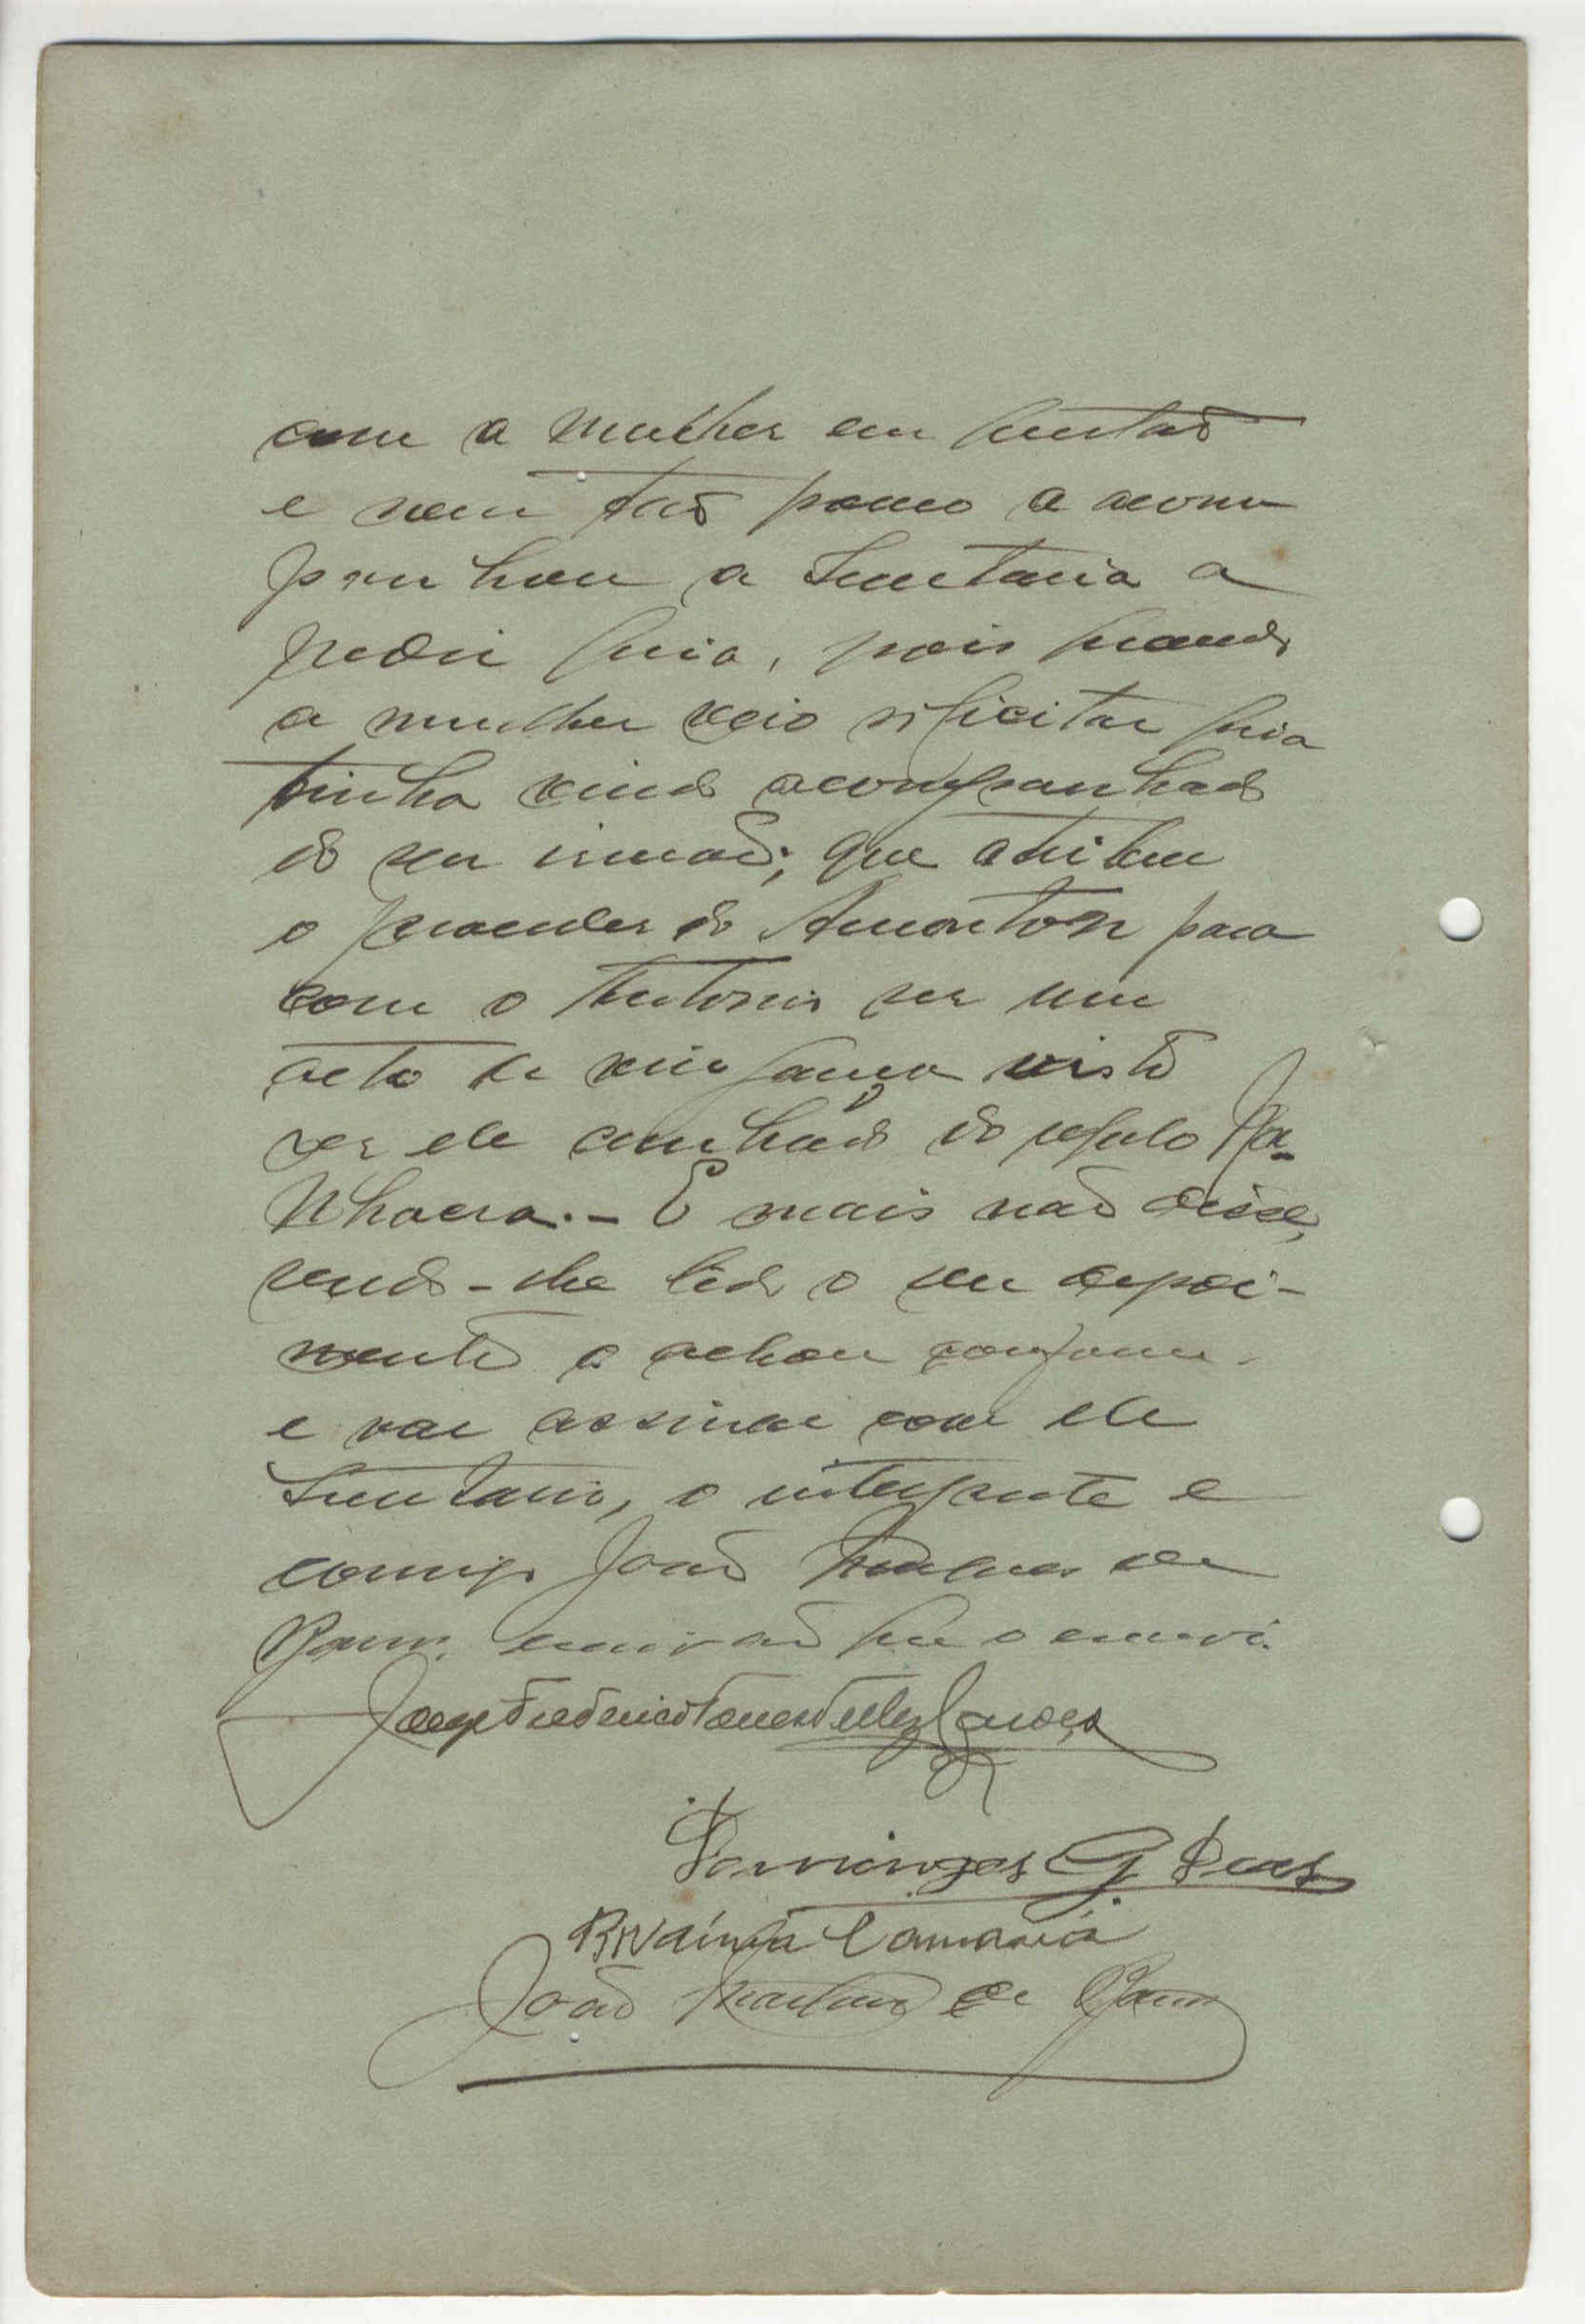 com a mulher em questão
e nem tão pouco a acom
panhou a Secretaria a
pedir guia, pois quando
a mulher veio solicitar guia
tinha vindo acompanhado
do seu irmão; que atribue
o proceder do Amonton para
com o Antonio ser um
acto de vingança visto
ser ele cunhado do regulo
E mais não disse,
sendo-lhe lido o seu depoi-
mento o achou conforme
e vae assinar com ele
Secretario, o interprete e
comigo João de
escrivão que o escrevi.
Jorge Frederico
Domingos G Dias
Camará
João de